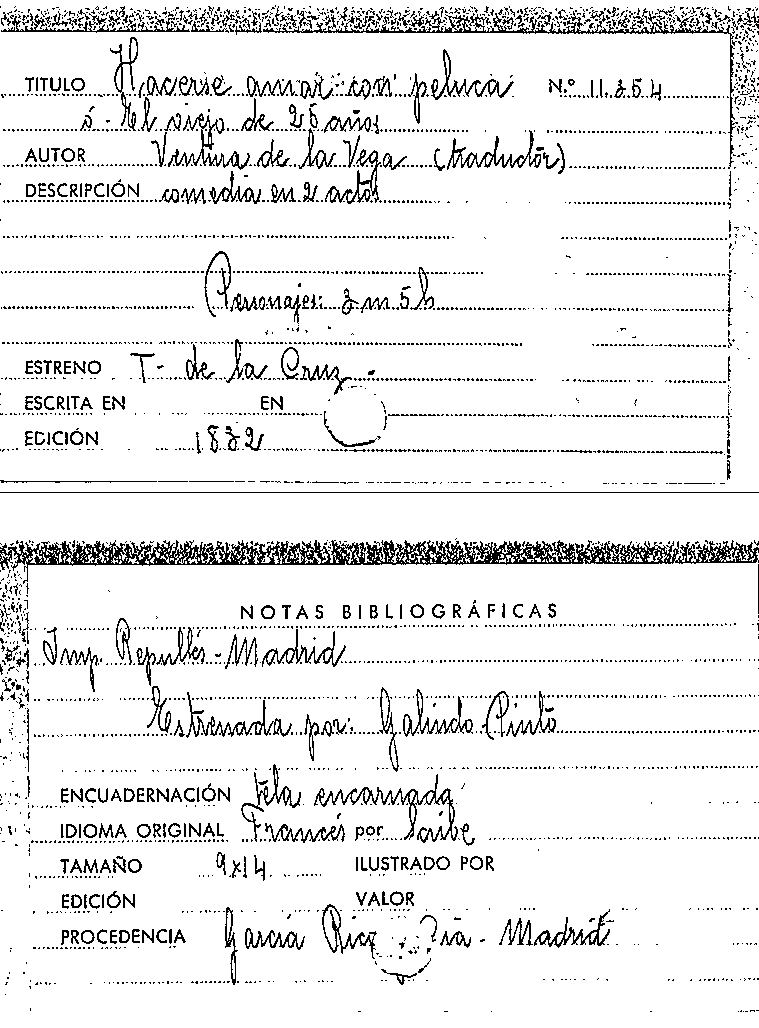 TITULO Hacerse amar con peluca N.º 11.354
ó - El viejo de 25 años
AUTOR Ventura de la Vega (traductor)
DESCRIPCIÓN comedia en 2 actos
Personajes: 3 m 5 h
ESTRENO T- de la Cruz -
ESCRITA EN EN
EDICIÓN 1832
NOTAS BIBLIOGRÁFICAS
Imp. Repullés - Madrid
Estrenada por: Galindo - Pinto
ENCUADERNACIÓN tela encarnada
IDIOMA ORIGINAL Francés por Scribe
TAMAÑO 9x14 ILUSTRADO POR
EDICIÓN VALOR
PROCEDENCIA García Rico - Madrid